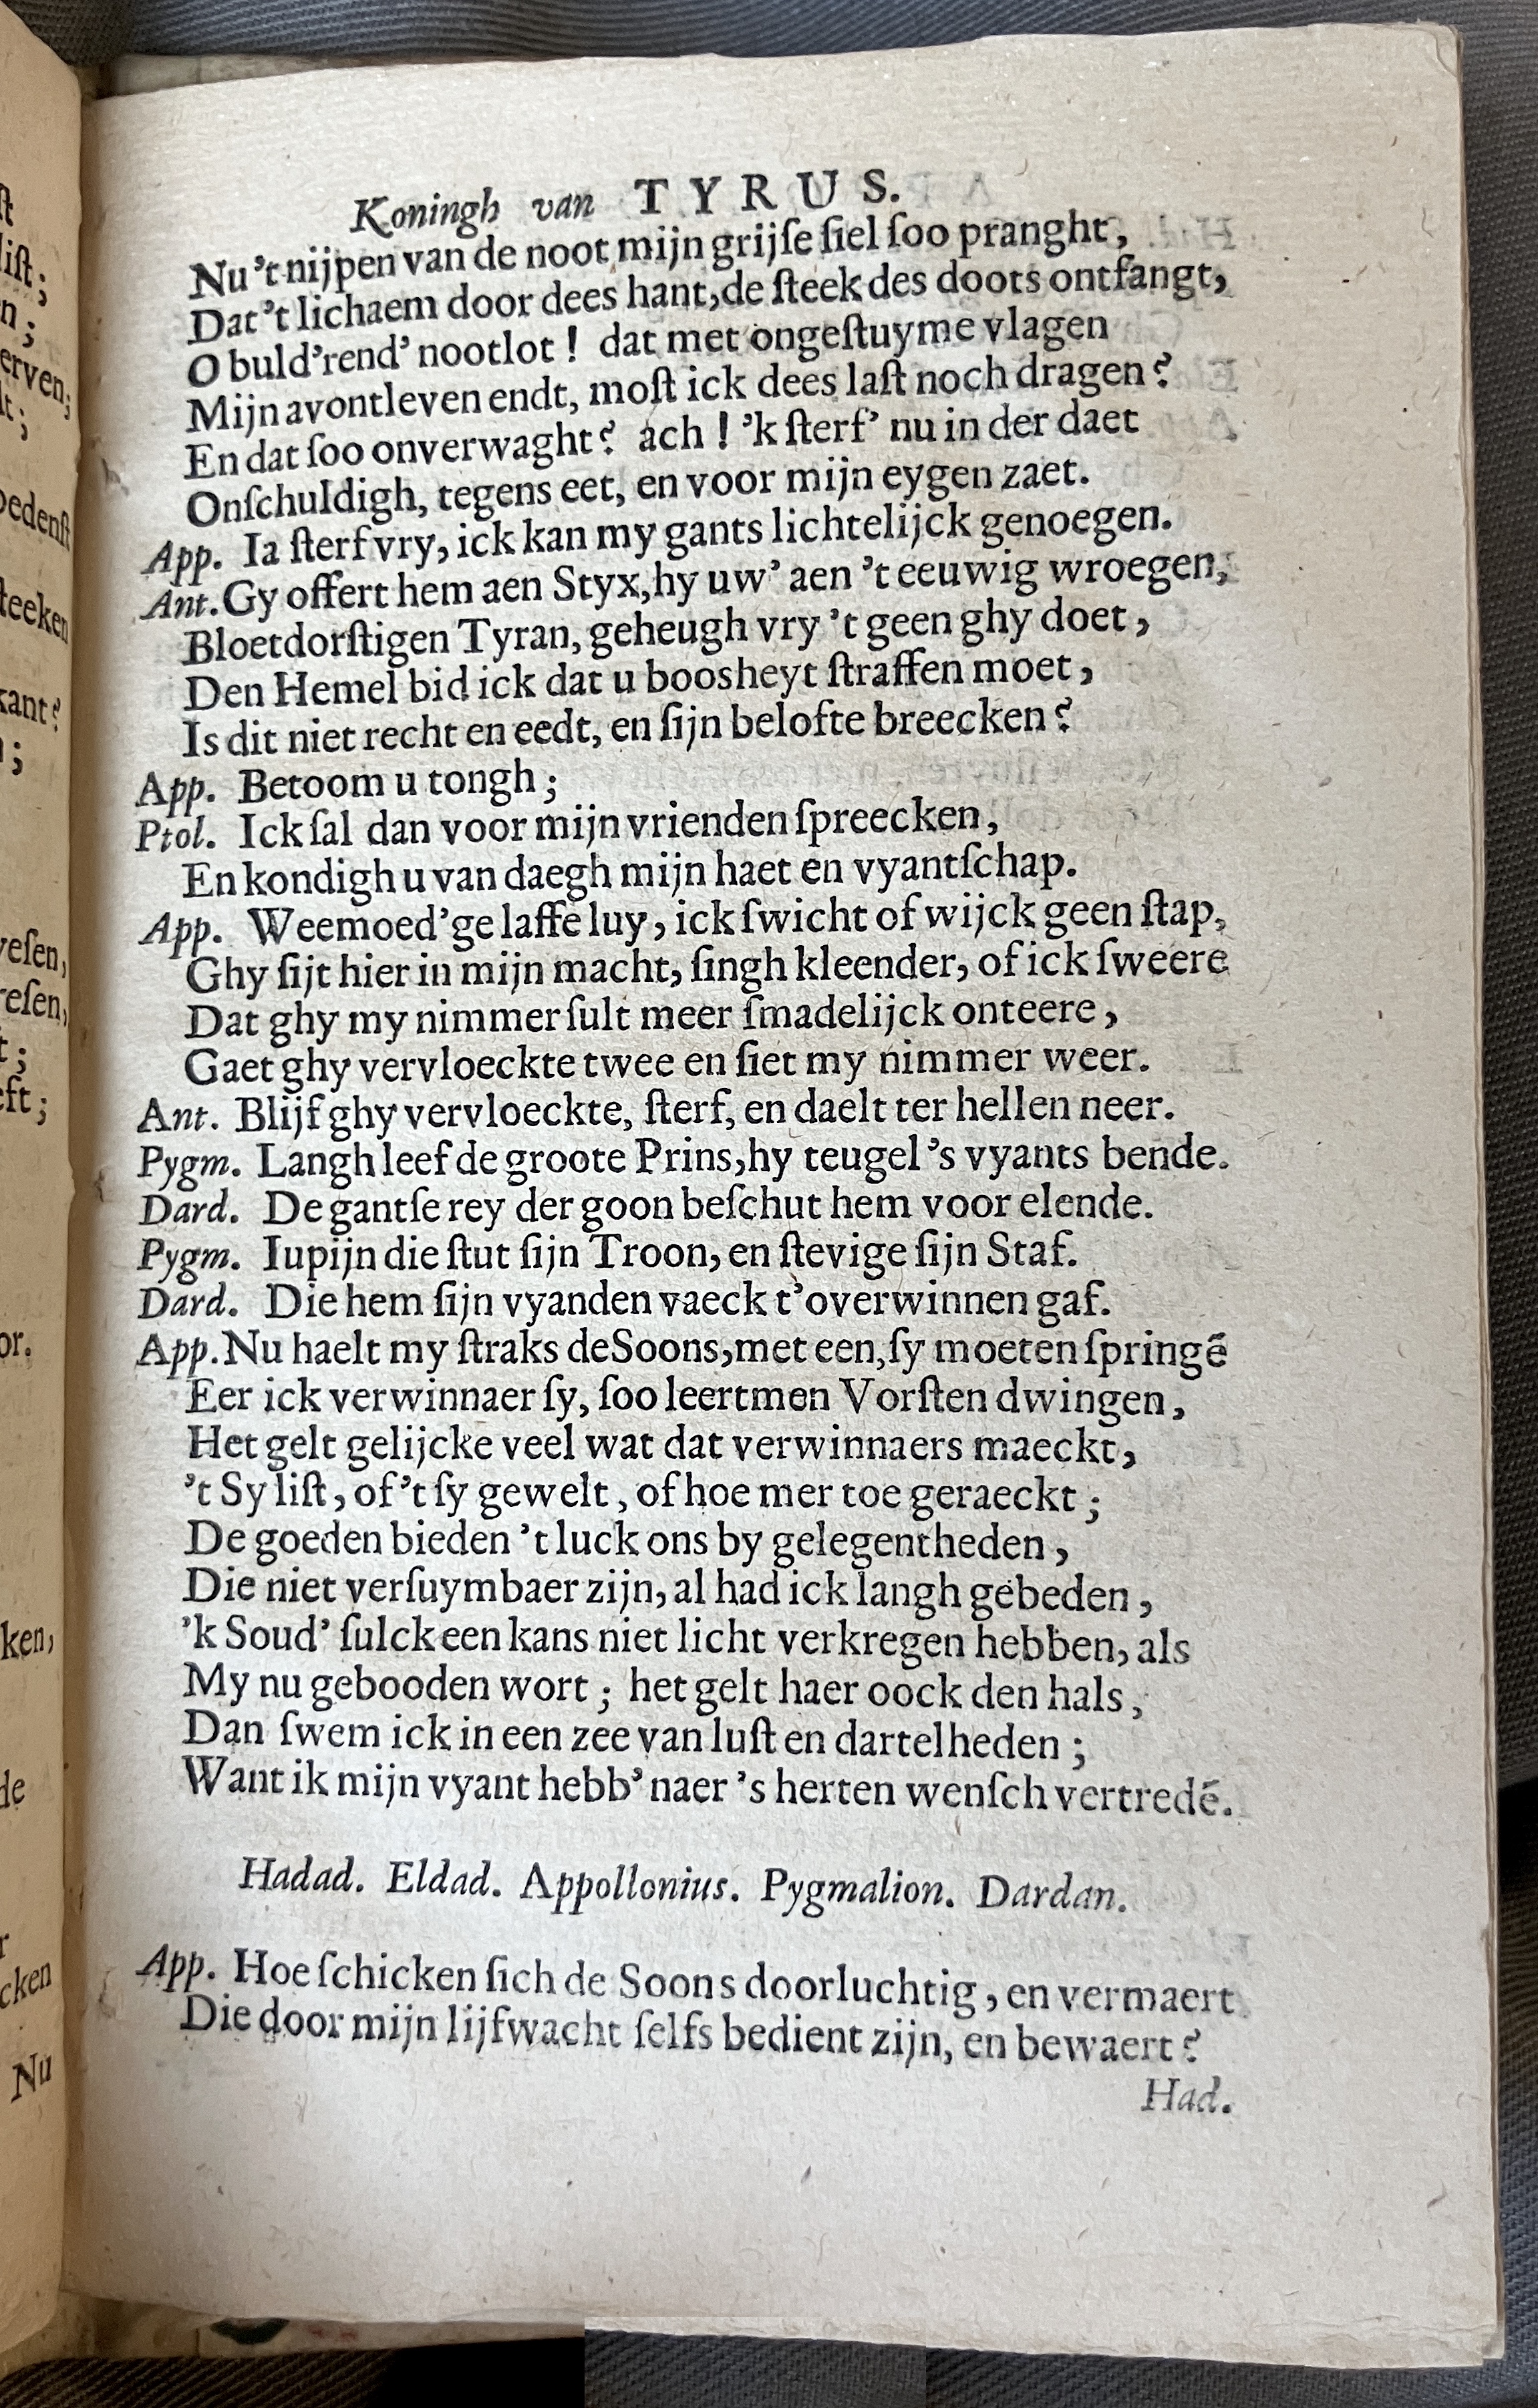 Koningh van TYRUS.
Nu 't nijpen van de noot mijn grijſe ſiel ſoo pranght,
Dat 't lichaem door dees hant, de ſteek des doots ontfangt,
O buld'rend' nootlot! dat met ongeſtuyme vlagen
Mijn avontleven endt, moſt ick dees laſt noch dragen?
En dat ſoo onverwaght? ach! 'k ſterf' nu in der daet
Onſchuldigh, tegens eet, en voor mijn eygen zaet.
App. Ia ſterf vry, ick kan my gants lichtelijck genoegen.
Ant. Gy offert hem aen Styx, hy uw' aen 't eeuwig wroegen,
Bloetdorſtigen Tyran, geheugh vry 't geen ghy doet,
Den Hemel bid ick dat u boosheyt ſtraffen moet,
Is dit niet recht en eedt, en ſijn belofte breecken?
App. Betoom u tongh;
Ptol. Ick ſal dan voor mijn vrienden ſpreecken,
En kondigh u van daegh mijn haet en vyantſchap.
App. Weemoed'ge laffe luy, ick ſwicht of wijck geen ſtap,
Ghy ſijt hier in mijn macht, ſingh kleender, of ick ſweere
Dat ghy my nimmer ſult meer ſmadelijck onteere,
Gaet ghy vervloeckte twee en ſiet my nimmer weer.
Ant. Blijf ghy vervloeckte, ſterf, en daelt ter hellen neer.
Pygm. Langh leef de groote Prins, hy teugel 's vyants bende.
Dard. De gantſe rey der goon beſchut hem voor elende.
Pygm. Iupijn die ſtut ſijn Troon, en ſtevige ſijn Staf.
Dard. Die hem ſijn vyanden vaeck t'overwinnen gaf.
App. Nu haelt my ſtraks de Soons, met een, ſy moeten ſpringē
Eer ick verwinnaer ſy, ſoo leertmen Vorſten dwingen,
Het gelt gelijcke veel wat dat verwinnaers maeckt,
't Sy liſt, of 't ſy gewelt, of hoe mer toe geraeckt;
De goeden bieden 't luck ons by gelegentheden,
Die niet verſuymbaer zijn, al had ick langh gebeden,
'k Soud' ſulck een kans niet licht verkregen hebben, als
My nu gebooden wort; het gelt haer oock den hals,
Dan ſwem ick in een zee van luſt en dartelheden;
Want ik mijn vyant hebb' naer 's herten wenſch vertredē.
Hadad. Eldad. Appollonius. Pygmalion. Dardan.
App. Hoe ſchicken ſich de Soons doorluchtig, en vermaert
Die door mijn lijfwacht ſelfs bedient zijn, en bewaert?
Had.